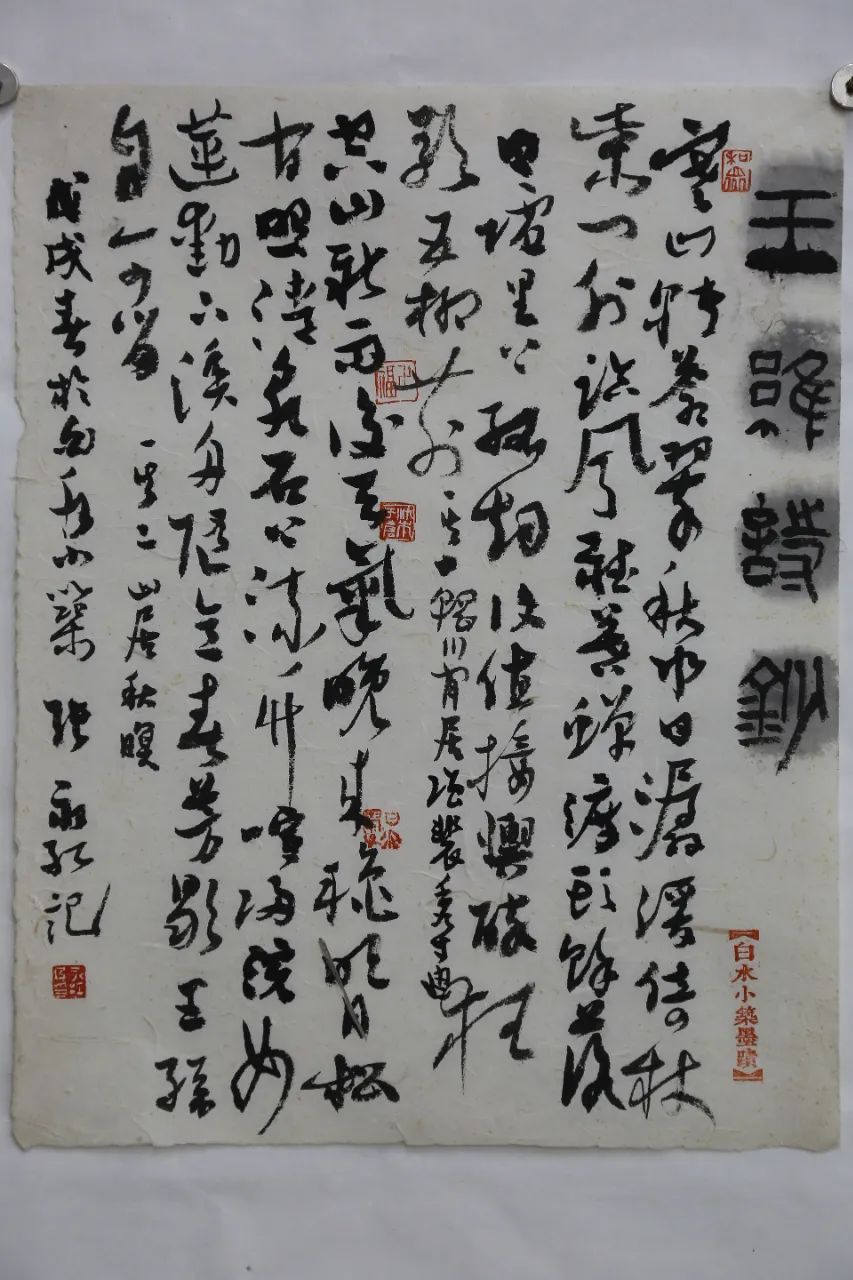 王維詩鈔
寒山轉蒼翠秋水日潺湲倚杖
柴門外臨風聽暮蟬渡頭餘落
日墟里上孤烟復值接輿醉狂
歌五柳前 其一輞川閒居贈裴秀才迪
空山新雨後天氣晚來秋明月松
間照清泉石上流竹喧歸浣女
蓮動下漁舟隨意春芳歇王孫
自可留 其二 山居秋暝
戊戌春於白水小築 張永红記
【白水小築墨蹟】